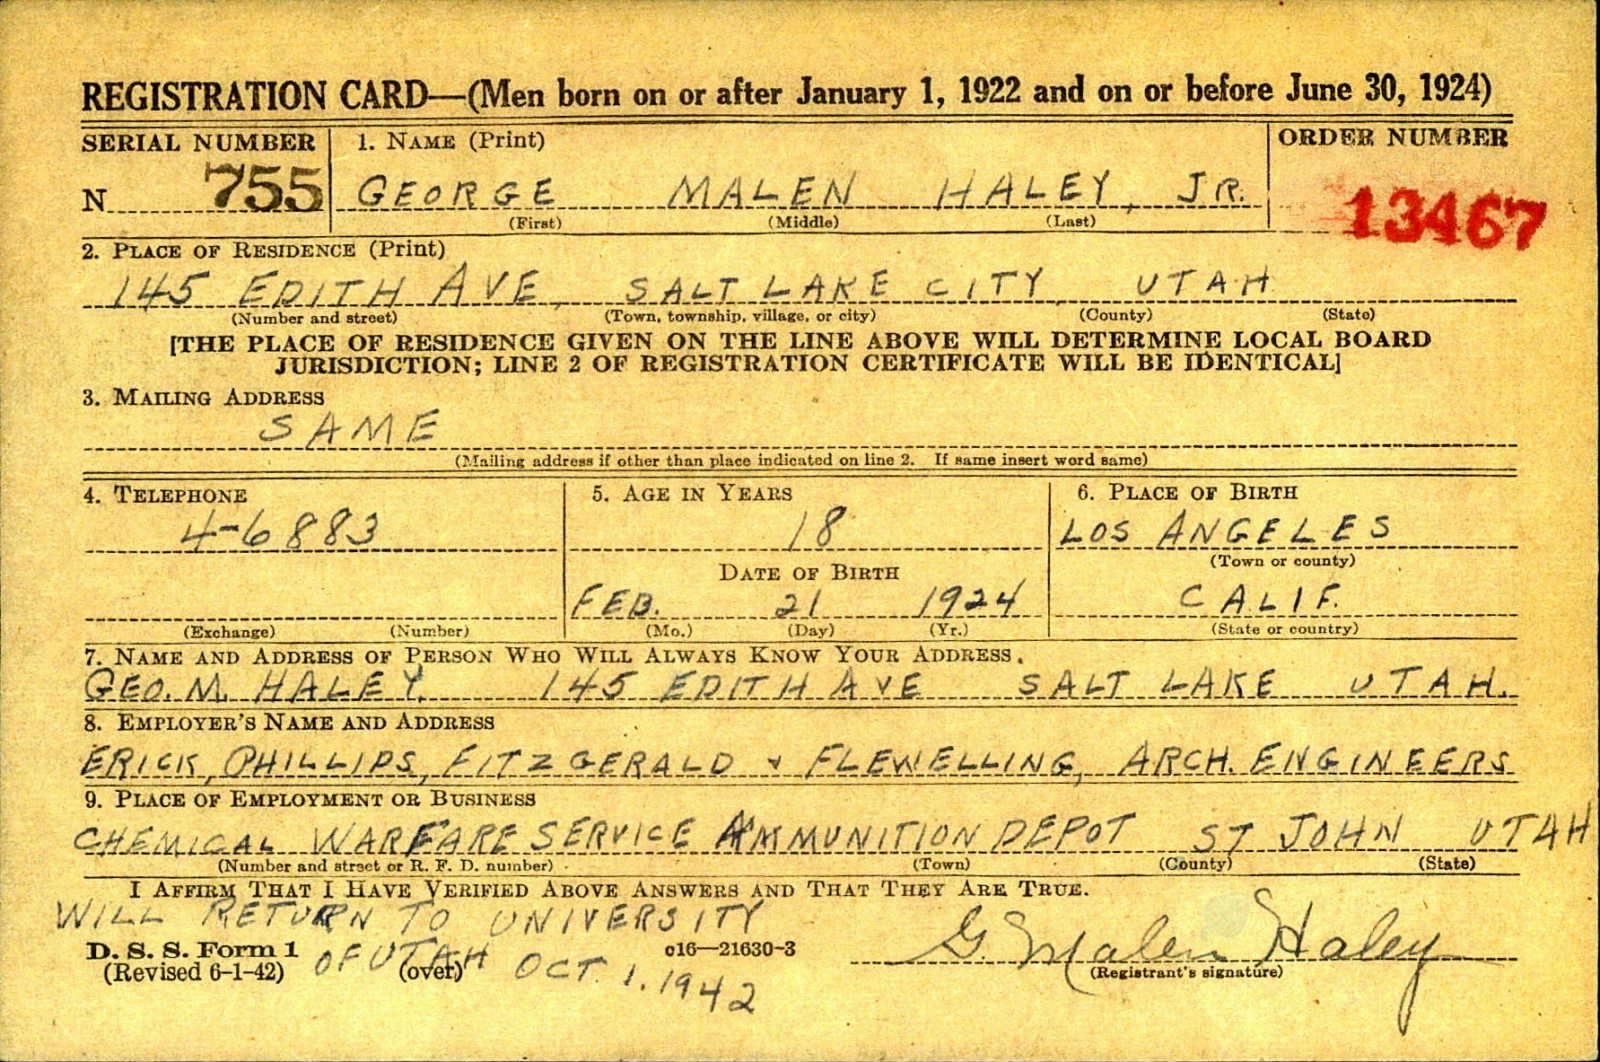 REGISTRATION CARD—(Men born on or after January 1, 1922 and on or before June 30, 1924)
SERIAL NUMBER 1. NAME (Print) ORDER NUMBER
N 755 GEORGE MALEN HALEY, JR. 13467
(First) (Middle) (Last)
2. PLACE OF RESIDENCE (Print)
145 EDITH AVE, SALT LAKE CITY UTAH
(Number and street) (Town, township, village, or city) (County) (State)
[THE PLACE OF RESIDENCE GIVEN ON THE LINE ABOVE WILL DETERMINE LOCAL BOARD
JURISDICTION; LINE 2 OF REGISTRATION CERTIFICATE WILL BE IDENTICAL]
3. MAILING ADDRESS
SAME
(Mailing address if other than place indicated on line 2. If same insert word same)
4. TELEPHONE 5. AGE IN YEARS 6. PLACE OF BIRTH
4-6883 18 LOS ANGELES
(Town or county)
DATE OF BIRTH
FEB. 21 1924 CALIF.
(Exchange) (Number) (Mo.) (Day) (Yr.) (State or country)
7. NAME AND ADDRESS OF PERSON WHO WILL ALWAYS KNOW YOUR ADDRESS.
GEO. M. HALEY. 145 EDITH AVE SALT LAKE UTAH.
8. EMPLOYER'S NAME AND ADDRESS
ERICK, PHILLIPS, FITZGERALD & FLEWELLING, ARCH. ENGINEERS
9. PLACE OF EMPLOYMENT OR BUSINESS
CHEMICAL WARFARE SERVICE AMMUNITION DEPOT ST JOHN UTAH
(Number and street or R. F. D. number) (Town) (County) (State)
I AFFIRM THAT I HAVE VERIFIED ABOVE ANSWERS AND THAT THEY ARE TRUE.
WILL RETURN TO UNIVERSITY
OF UTAH OCT. 1, 1942
D. S. S. Form 1
(Revised 6-1-42) (over) c16—21630-3
G. Malen Haley
(Registrant's signature)